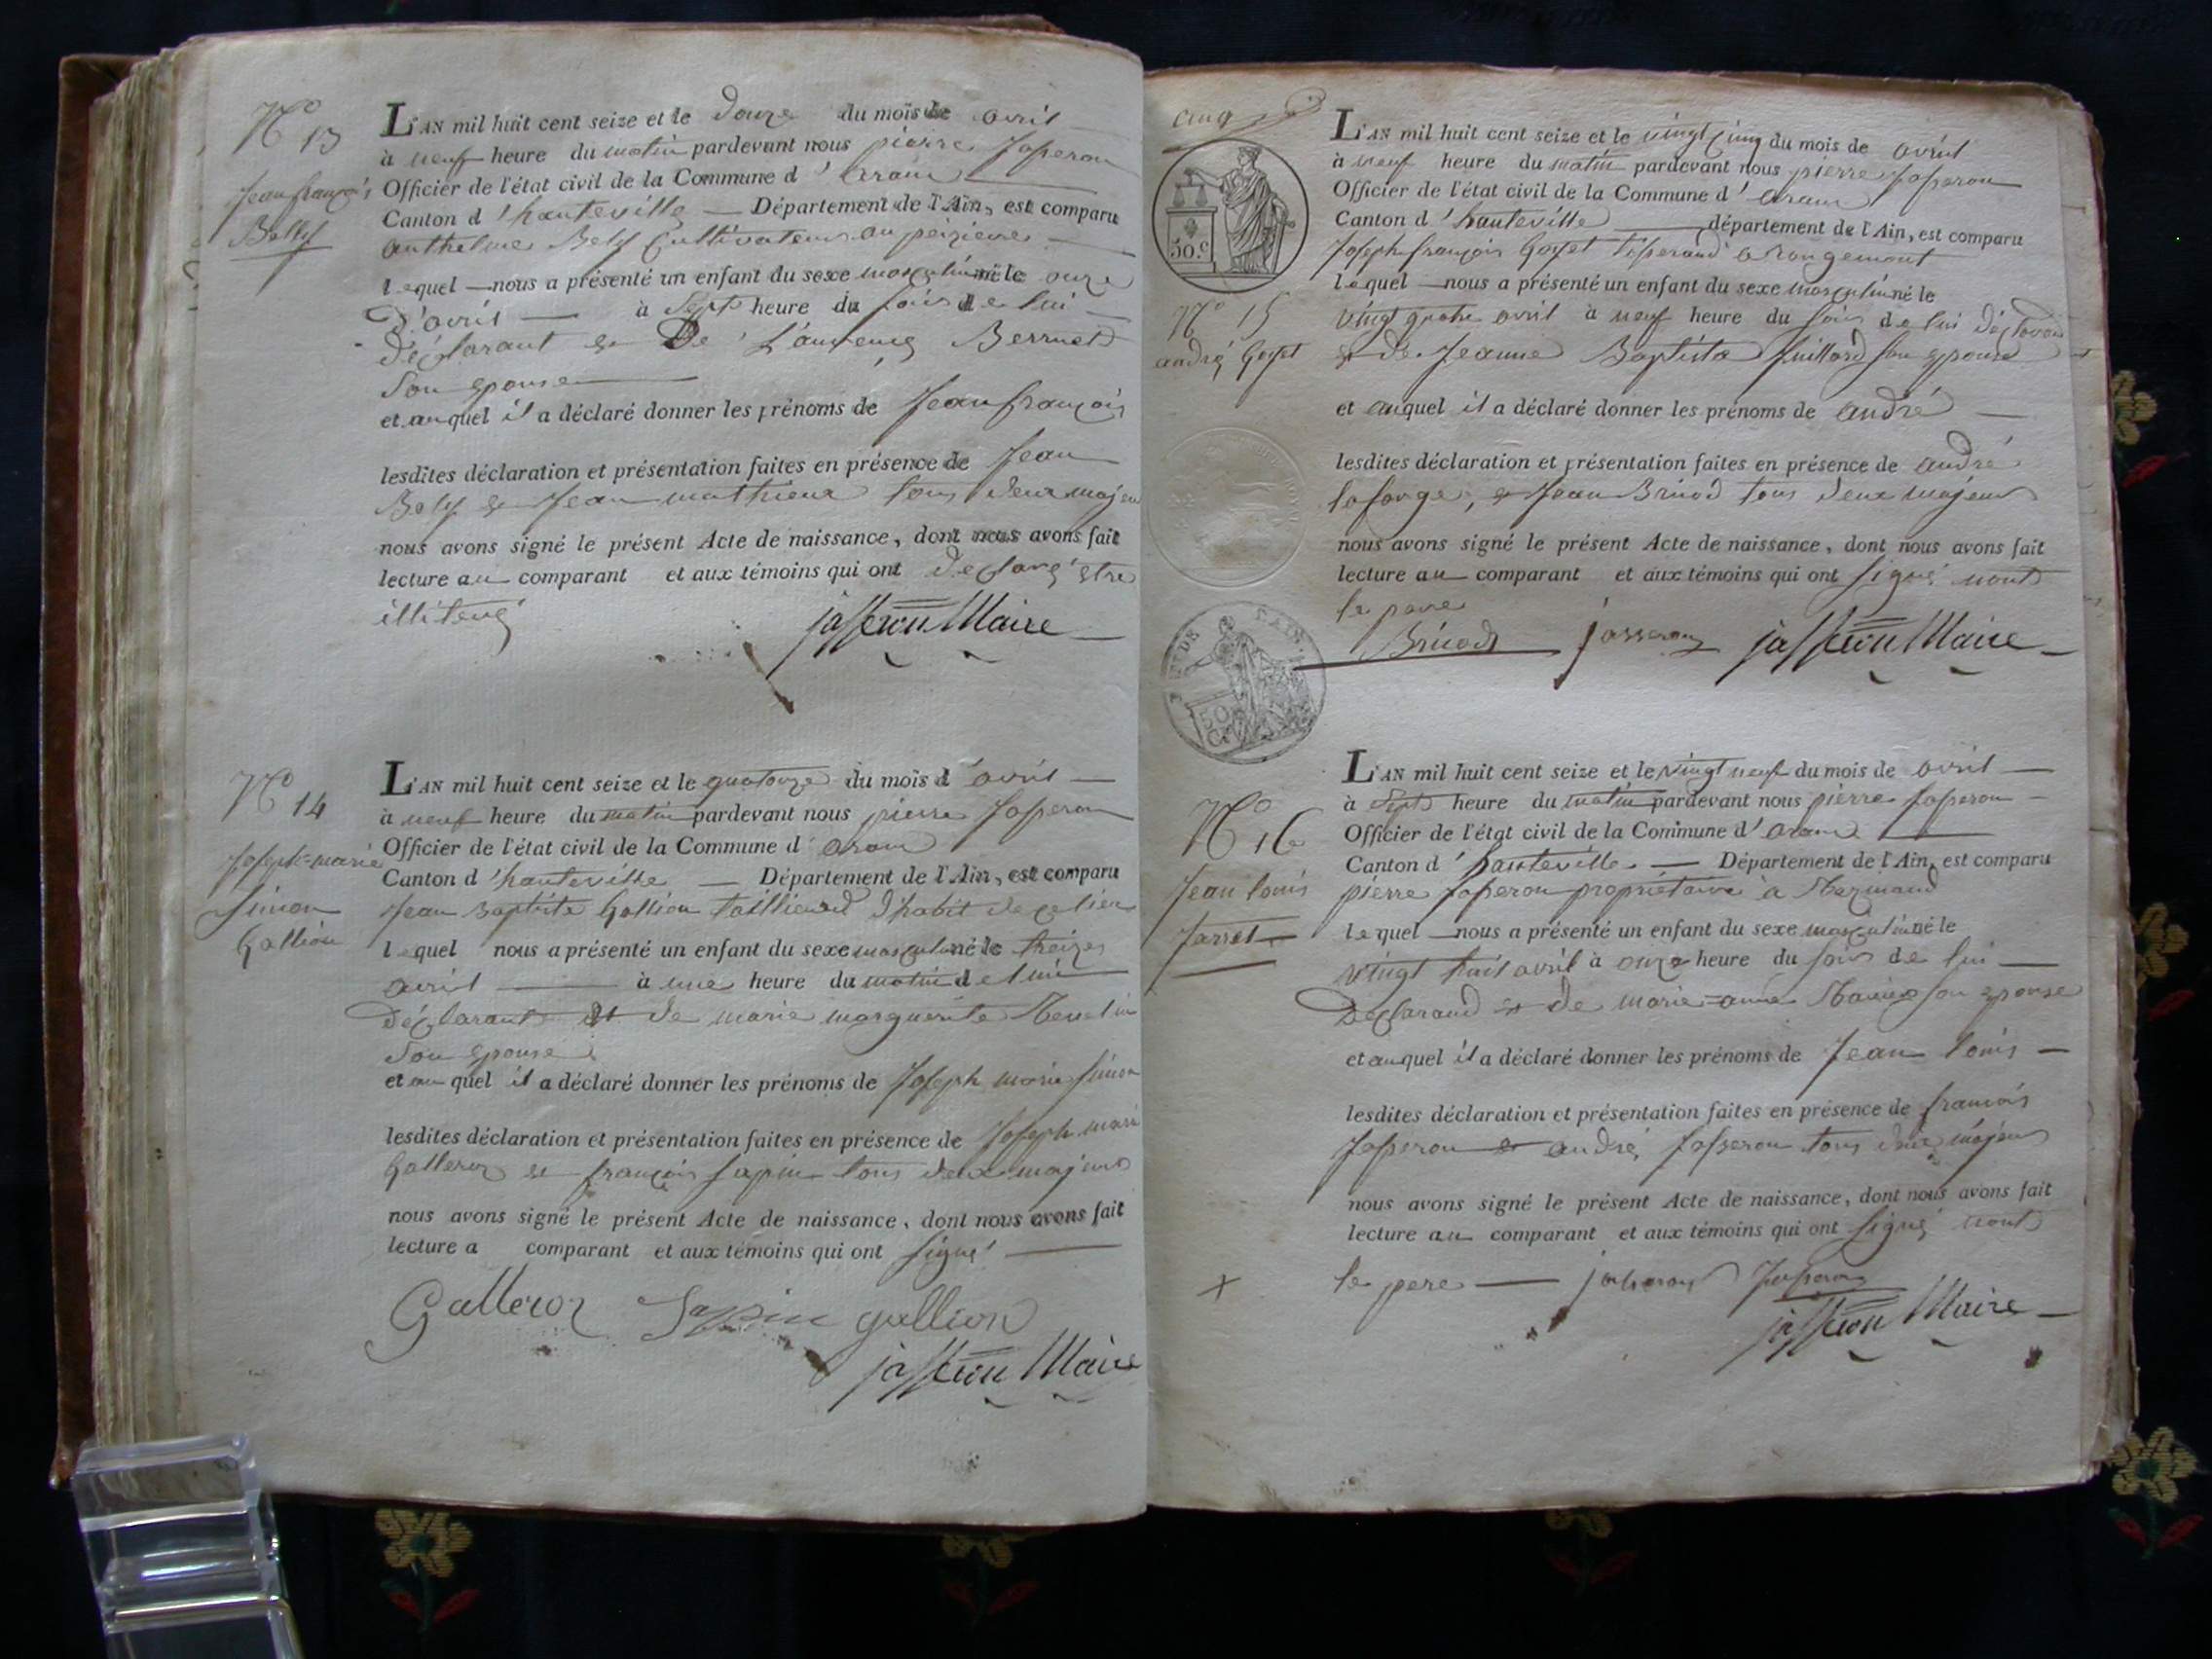 N° 13
Jean françois
Bely
L'AN mil huit cent seize et le douze du mois de avril
à neuf heure du matin pardevant nous pierre Josseron
Officier de l'état civil de la Commune d' aranc
Canton d'hauteville Département de l'Ain, est comparu
anthelme Bely Cultivateur au
lequel nous a présenté un enfant du sexe masculin né le onze
d'avril à Sept heure du soir de lui
déclarant et De Laurence Berruet
Son epouse
et auquel il a déclaré donner les prénoms de Jean françois
lesdites déclaration et présentation faites en présence de Jean
Bely et Jean mathieux tous deux majeur
nous avons signé le présent Acte de naissance, dont nous avons fait
lecture au comparant et aux témoins qui ont declaré etre
illiteré
josseron Maire
N° 14
Joseph-marie
simon
Gallion
L'AN mil huit cent seize et le quatorze du mois d'avril
à neuf heure du matin pardevant nous pierre Josseron
Officier de l'état civil de la Commune d' aranc
Canton d'hauteville Département de l'Ain, est comparu
Jean Baptiste Gallion taillieurd d'habit de ce lieu
lequel nous a présenté un enfant du sexe masculin né le treize
avril à une heure du matin de lui
déclarant et de marie marguerite
Son epouse
et au quel il a déclaré donner les prénoms de Joseph marie simon
lesdites déclaration et présentation faites en présence de Joseph marie
Galleroz et françois sapin tous deux majeurs
nous avons signé le présent Acte de naissance, dont nous avons fait
lecture a comparant et aux témoins qui ont signé
Galleroz Sappin gallion
josseron Maire
cinq
50.c
DE L'AIN
50
N° 15
andré Goyet
L'AN mil huit cent seize et le vingt cinq du mois de avril
à neuf heure du matin pardevant nous pierre Josseron
Officier de l'état civil de la Commune d' aranc
Canton d'hauteville département de l'Ain, est comparu
Joseph françois Goyet tisserand a rougemont
lequel nous a présenté un enfant du sexe masculin né le
vingt quatre avril à neuf heure du soir de lui déclarant
et de Jeanne Baptista Juillard son epouse
et auquel il a déclaré donner les prénoms de andré
lesdites déclaration et présentation faites en présence de andré
laforge, et Jean Briod tous deux majeurs
nous avons signé le présent Acte de naissance, dont nous avons fait
lecture au comparant et aux témoins qui ont signé nont
le pere
Briod josseron josseron Maire
N° 16
Jean louis
L'AN mil huit cent seize et le vingt neuf du mois de avril
à Sept heure du matin pardevant nous pierre Josseron
Officier de l'état civil de la Commune d' aranc
Canton d'hauteville Département de l'Ain, est comparu
pierre Josseron propriétaire à
lequel nous a présenté un enfant du sexe masculin né le
vingt huit avril à onze heure du soir de lui
declarand et de marie-anne son epouse
et auquel il a déclaré donner les prénoms de Jean louis
lesdites déclaration et présentation faites en présence de francois
Josseron et andré Josseron tous deux majeurs
nous avons signé le présent Acte de naissance, dont nous avons fait
lecture au comparant et aux témoins qui ont signé nont
le pere josseron Josseron
josseron Maire